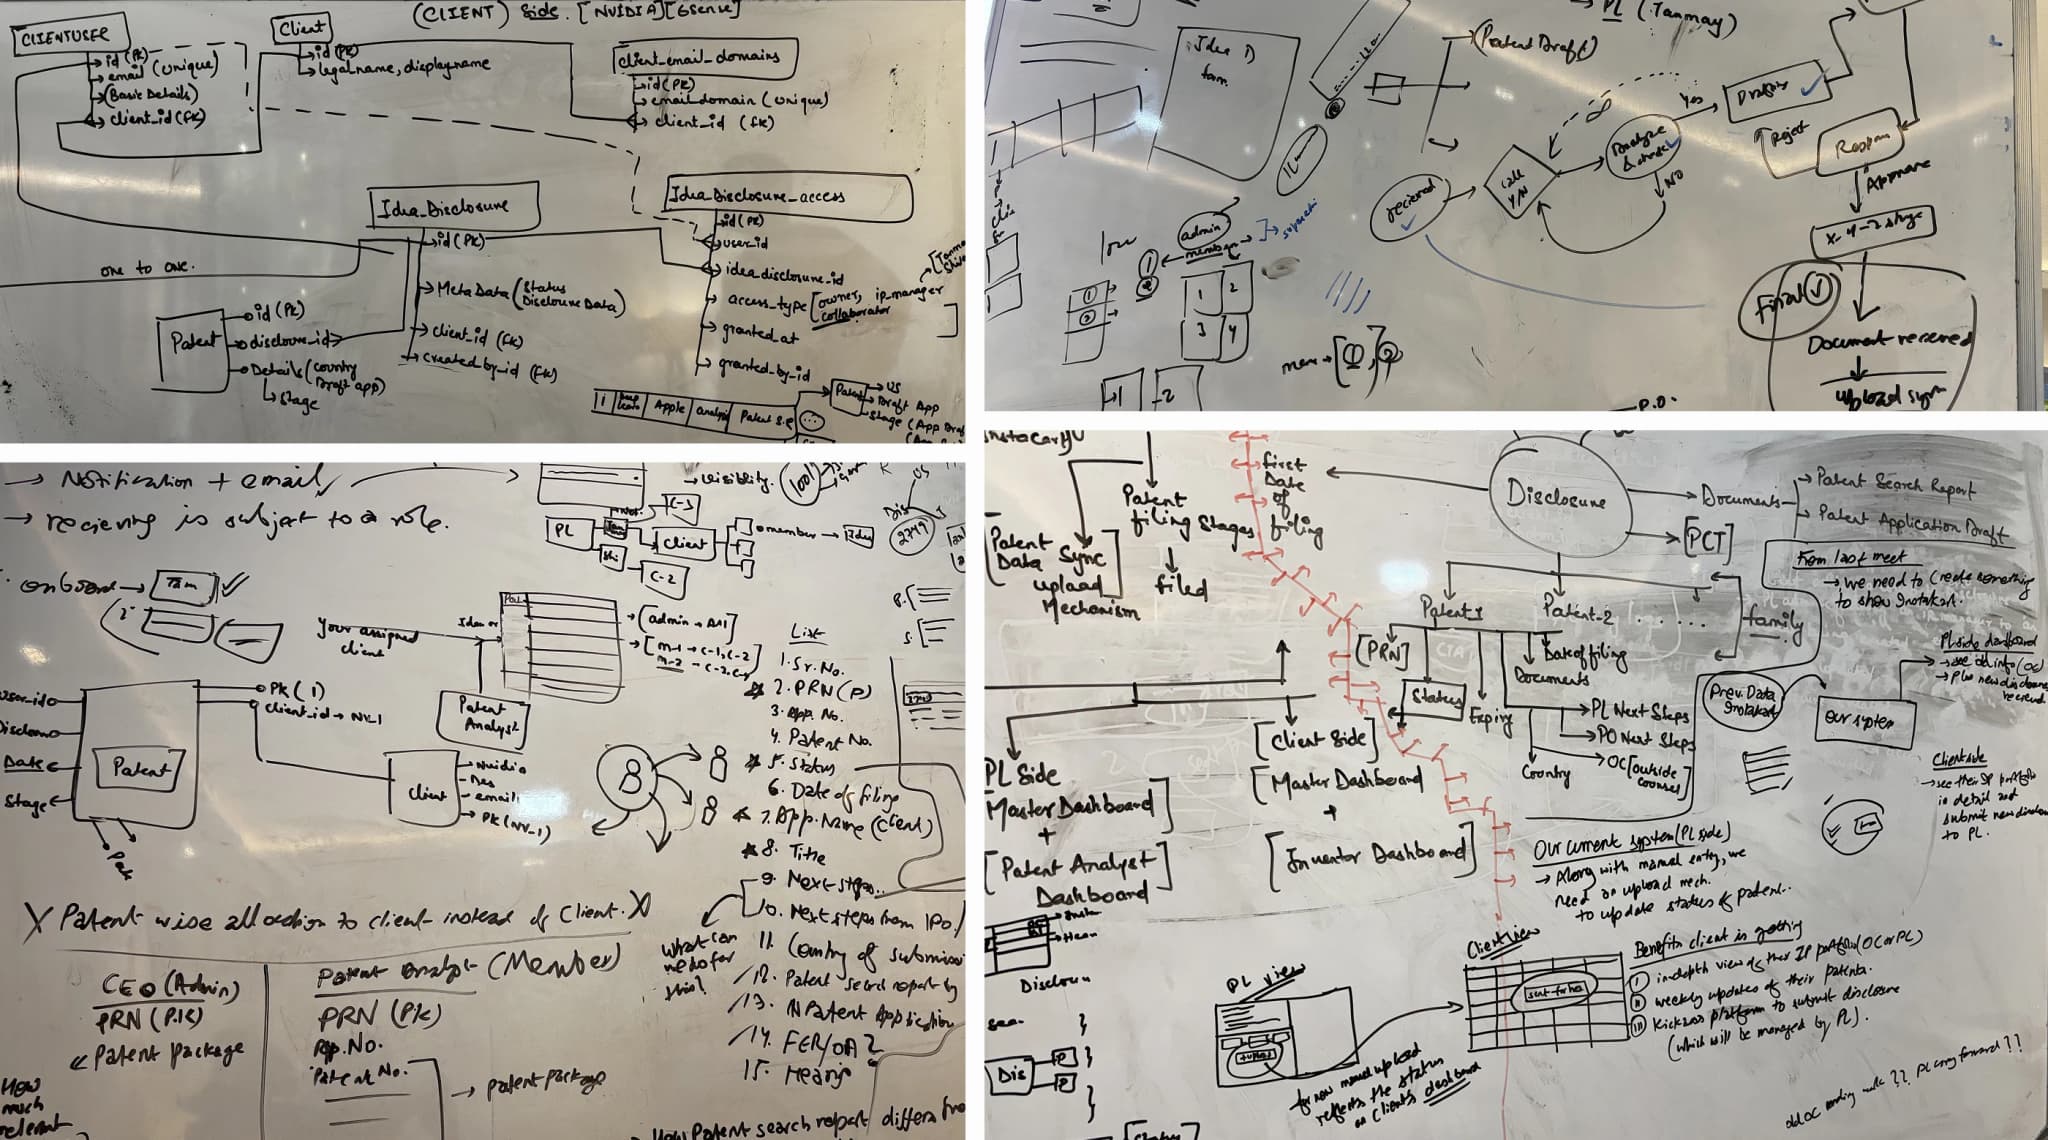 (CLIENT) Side. [NVIDIA][6sense]
CLIENTUSER
id (PK)
email (unique)
(Basic Details)
client_id (FK)
Client
id (PK)
legalname, displayname
client_email_domains
id (PK)
email domain (unique)
client_id (FK)
Idea_Disclosure
id (PK)
MetaData (Status
Disclosure Data)
client_id (FK)
created_by_id (FK)
one to one.
Patent
id (PK)
disclosure_id
Details (country
Draft app)
Stage
Idea_Disclosure_access
id (PK)
user_id
idea_disclosure_id
access_type [owner, ip_manager
collaborator
granted_at
granted_by_id
1
Apple
Patent
US
Draft App
Stage (App Draft
PL (Tanmay)
(Patent Draft)
Idea 1)
form
Yes
Drafting
Reject
Analyze
NO
recieved
Y/N
Approve
x-y-z stage
Final
Document received
upload sym
admin
member
1
2
1
2
3
4
1
2
mem → [1, 2]
1
2
P.O.
→ Notification + email
→ recieving is subject to a role.
visibility.
1001
PL
C-3
Client
C-2
member
Idea
2749
onboard → Tam
2
Your assigned
client
Patent
Analyst
[admin → All]
[m-1 → C-1, C-2
m-2
List
1. Sr. No.
2. PRN (P)
3. App. No.
4. Patent No.
5. Status
6. Date of filing
7. App. Name (Client)
8. Title
9. Next steps..
10. Next steps from IPO/
11. Country of submission
12. Patent search report by
13. Patent Application
14. FER/OA
15. Hearing
What can
we do for
this?
user-id
Date
Stage
Patent
PK (1)
client_id → NV-1
Client
Nvidia
Des
email
PK (NV-1)
X Patent wise allocation to client instead of Client. X
CEO (Admin)
PRN (P.K)
Patent package
How
much
relevant
Patent analyst (Member)
PRN (PK)
App. No.
Patent No.
→ patent package
How Patent search report differs from
Instacart
Patent
filing Stages
Patent
Data Sync
upload
Mechanism
filed
first
Date
of
filing
Disclosure
Documents
Patent Search Report
Patent Application Draft
[PCT]
From last meet
→ we need to create something
to show Instakart.
Patent-1
Patent-2
...
family
[PRN]
Status
Expiry
Date of filing
Documents
PL Next Steps
PO Next Steps
OC [outside
counsel]
Country
Prev. Data
Instakart
Our system
PL side dashboard
→ see old info (OC)
→ plus new disclosures
received
Client side
→ see their IP portfolio
in detail and
submit new disclosure
to PL.
PL Side
[Master Dashboard]
+
[Patent Analyst
Dashboard]
[Client Side]
[Master Dashboard]
+
[Inventor Dashboard]
Our current system (PL side)
→ Along with manual entry, we
need an upload mech.
to update status of patent..
Client View
PL View
for now manual upload
reflects the status
on Client's dashboard
Benefits client is getting
I indepth view of their IP portfolio (OC or PL)
II weekly updates of their patents.
III Kickass platform to submit disclosure
(which will be managed by PL).
Dis
P
P
PL carry forward??